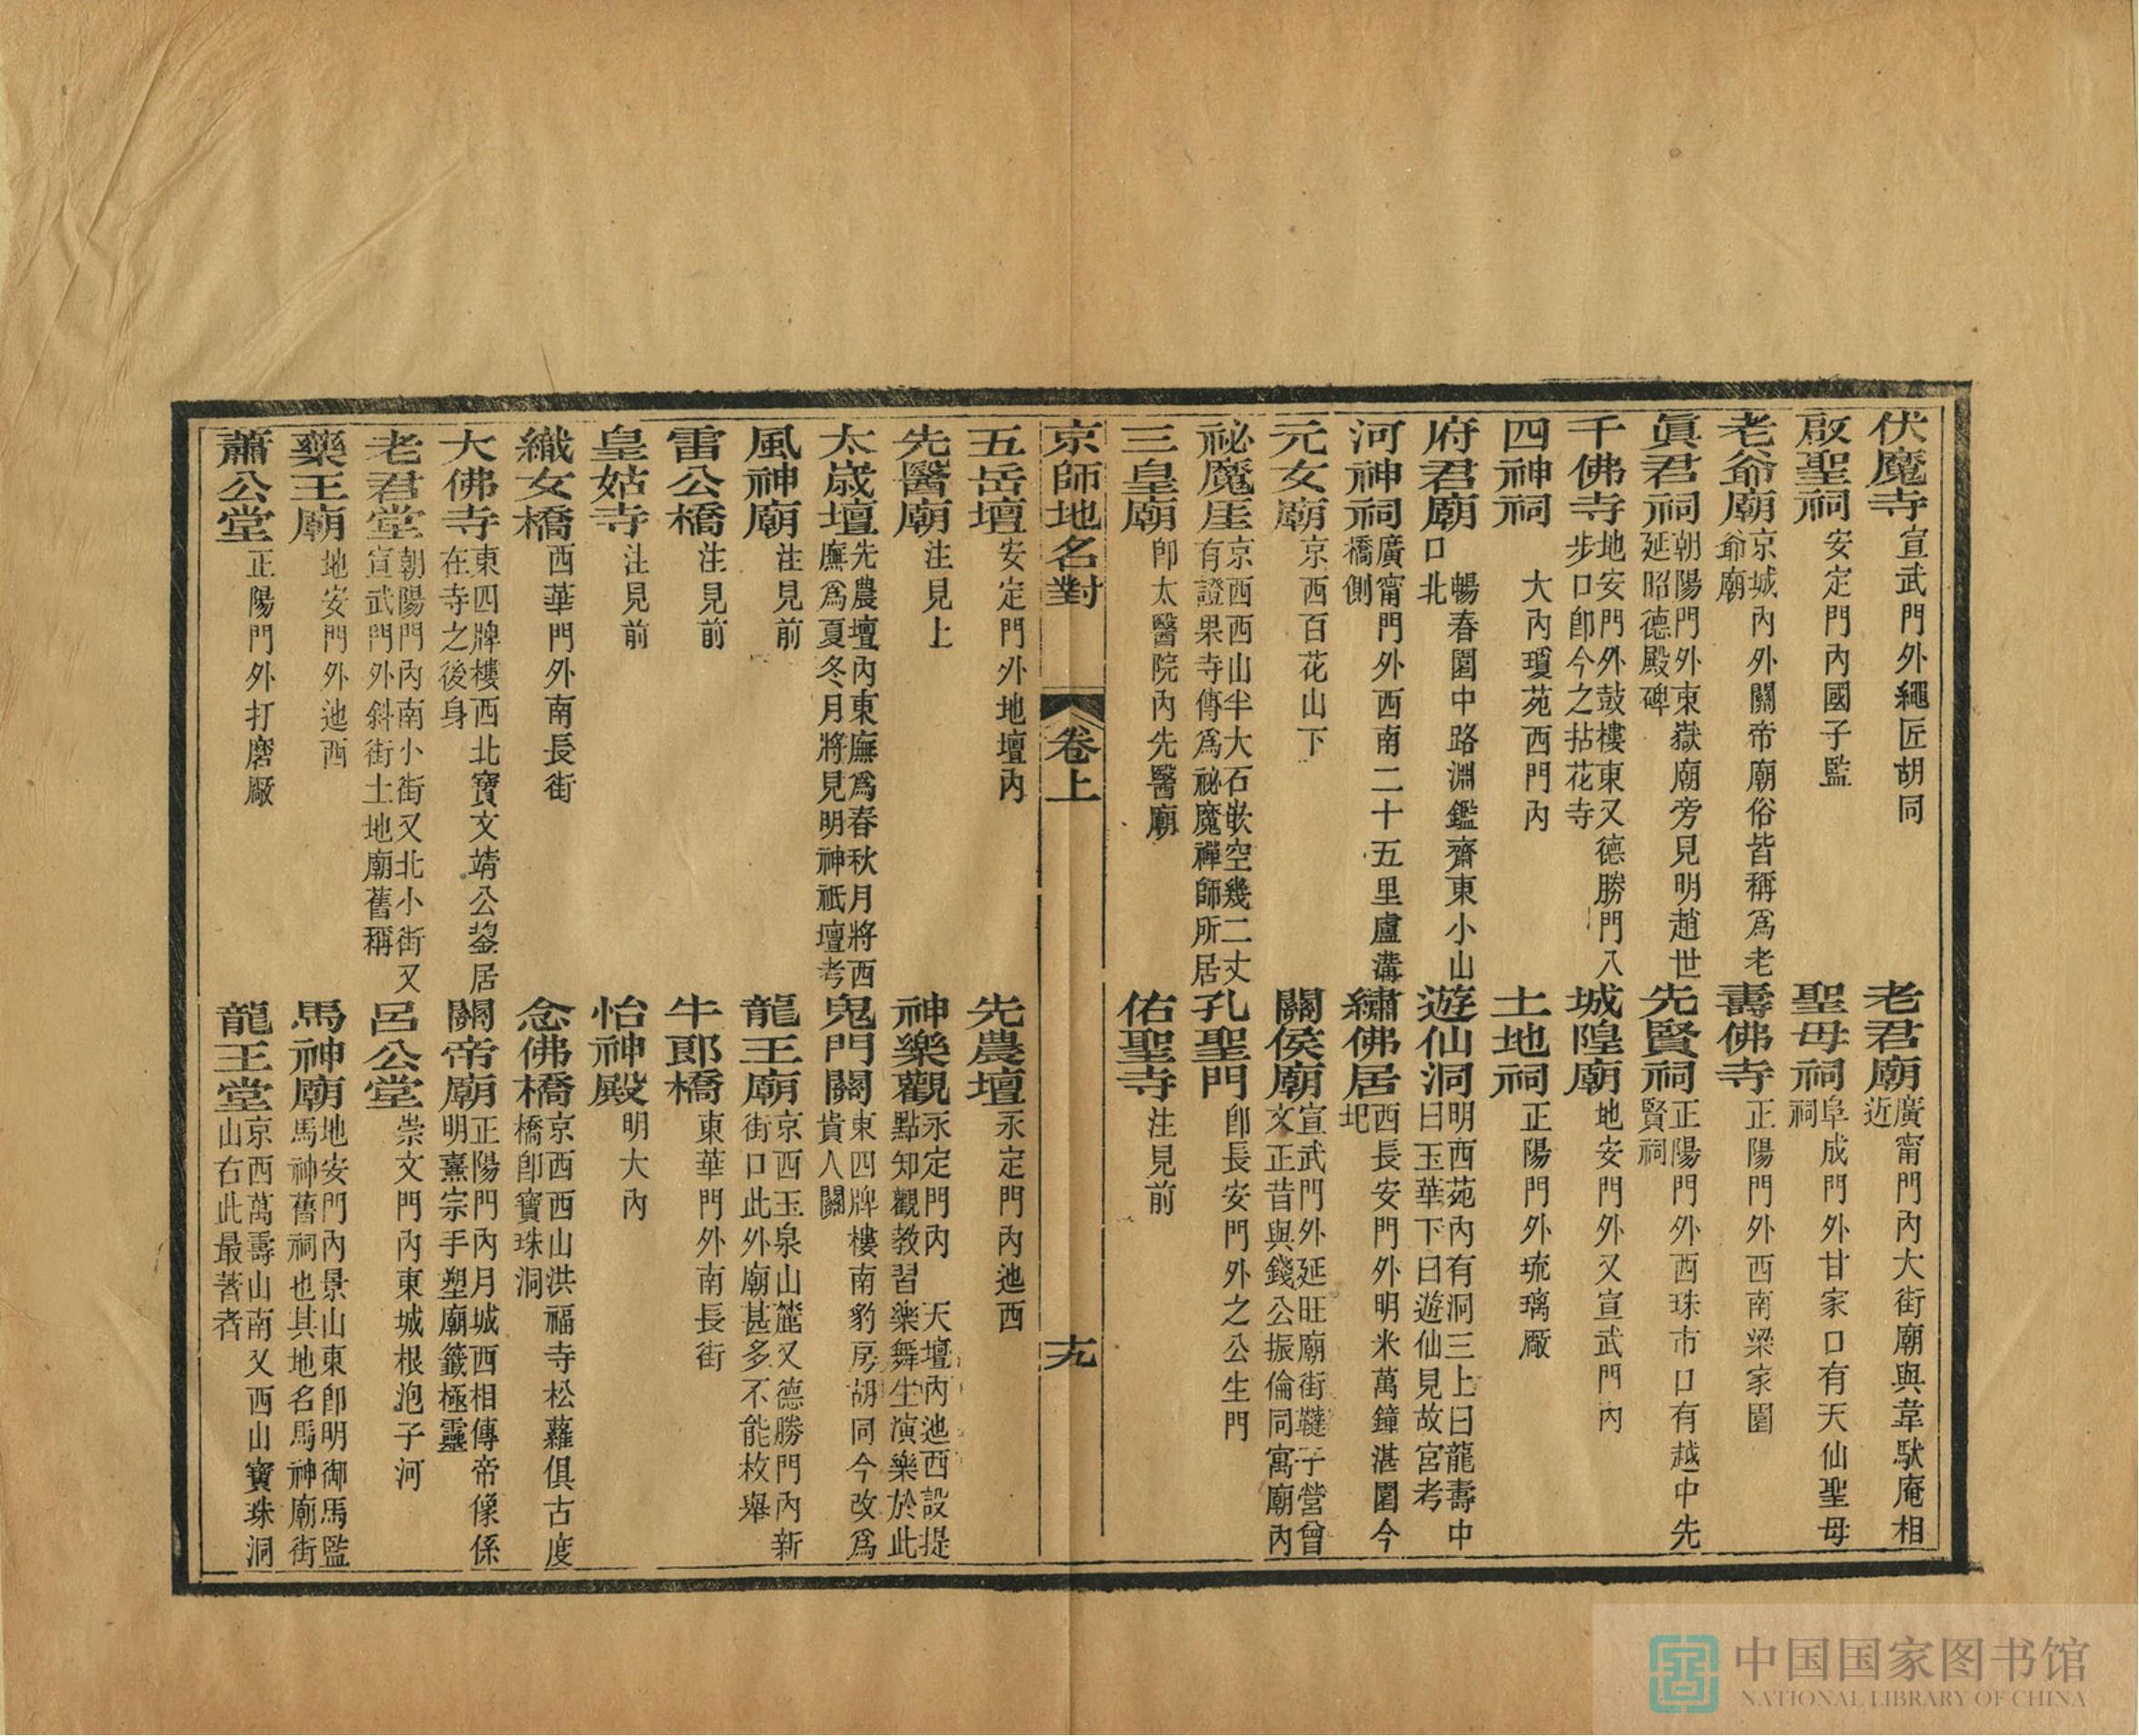 伏魔寺宣武門外繩匠胡同　老君廟廣甯門內大街廟與韋馱庵相近
啟聖祠安定門內國子監　聖母祠阜成門外甘家口有天仙聖母祠
老爺廟京城內外關帝廟俗皆稱爲老爺廟　壽佛寺正陽門外西南梁家園
眞君祠朝陽門外東嶽廟旁見明趙世延昭德殿碑　先賢祠正陽門外西珠市口有越中先賢祠
千佛寺地安門外鼓樓東又德勝門八步口卽今之拈花寺　城隍廟地安門外又宣武門內
四神祠　大內瓊苑西門內　土地祠正陽門外琉璃厰
府君廟　暢春園中路淵鑑齋東小山口北　遊仙洞明西苑內有洞三上曰龍壽中曰玉華下曰遊仙見故宮考
河神祠廣甯門外西南二十五里盧溝橋側　繡佛居西長安門外明米萬鐘湛園今圯
元女廟京西百花山下　關侯廟宣武門外延旺廟街韃子營曾文正昔與錢公振倫同寓廟內
祕魔崖京西西山半大石嵌空幾二丈有證果寺傳爲祕魔禪師所居　孔聖門卽長安門外之公生門
三皇廟卽太醫院內先醫廟　佑聖寺注見前
京師地名對　卷上　十九
五岳壇安定門外地壇內　先農壇永定門內迤西
先醫廟注見上　神樂觀永定門內　天壇內迤西設提點知觀教習樂舞生演樂於此
太歲壇先農壇內東廡爲春秋月將西廡爲夏冬月將見明神祇壇考　鬼門關東四牌樓南豹房胡同今改爲貴人關
風神廟注見前　龍王廟京西玉泉山麓又德勝門內新街口此外廟甚多不能枚舉
雷公橋注見前　牛郎橋東華門外南長街
皇姑寺注見前　怡神殿明大內
織女橋西華門外南長街　念佛橋京西西山洪福寺松蘿俱古度橋卽寶珠洞
大佛寺東四牌樓西北寶文靖公鋆居在寺之後身　關帝廟正陽門內月城西相傳帝像係明熹宗手塑廟籤極靈
老君堂朝陽門內南小街又北小街又宣武門外斜街土地廟舊稱　呂公堂崇文門內東城根泡子河
藥王廟地安門外迤西　馬神廟地安門內景山東卽明御馬監馬神舊祠也其地名馬神廟街
蕭公堂正陽門外打磨厰　龍王堂京西萬壽山南又西山寶珠洞山右此最著者
中国国家图书馆
NATIONAL LIBRARY OF CHINA